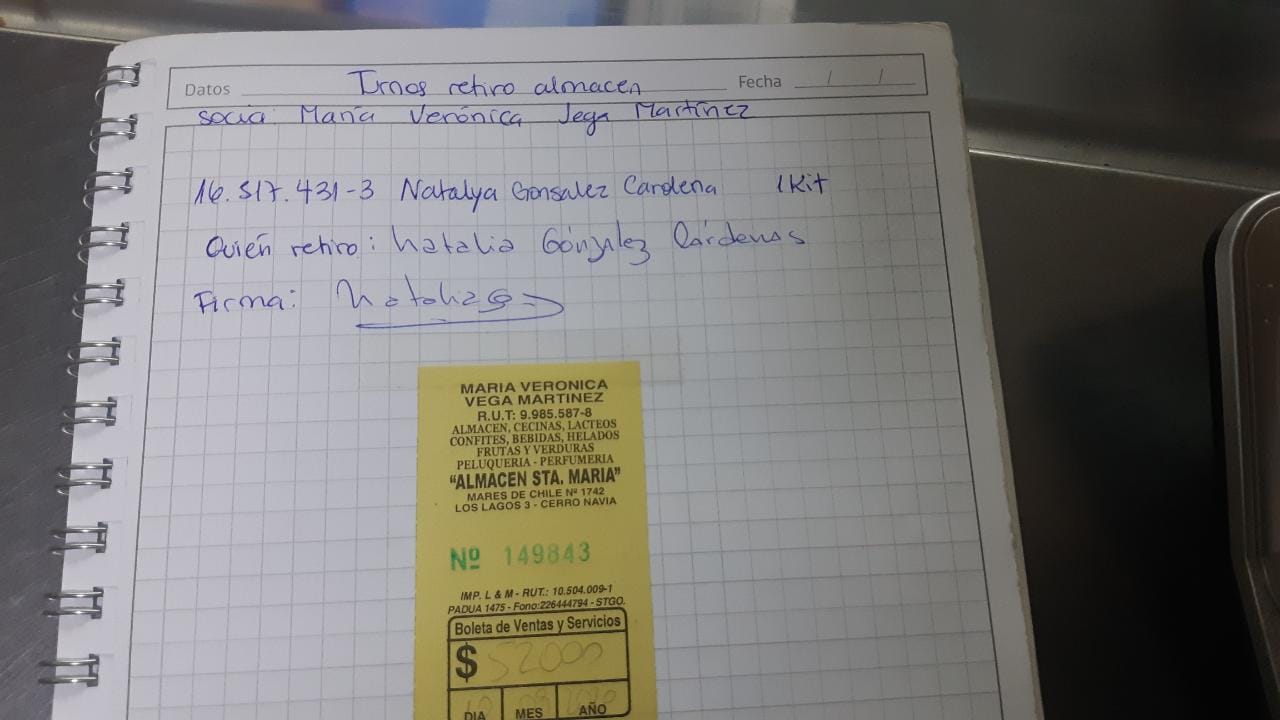 Datos Irnos retiro almacen Fecha / /
socia: María Verónica Vega Martínez
16.517.431-3 Natalya Gonsalez Cardena 1 Kit
Quién retiro: Natalia Gónzalez Cárdenas
Firma: Natalia
MARIA VERONICA
VEGA MARTINEZ
R.U.T: 9.985.587-8
ALMACEN, CECINAS, LACTEOS
CONFITES, BEBIDAS, HELADOS
FRUTAS Y VERDURAS
PELUQUERIA - PERFUMERIA
"ALMACEN STA. MARIA"
MARES DE CHILE Nº 1742
LOS LAGOS 3 - CERRO NAVIA
Nº 149843
IMP. L & M - RUT.: 10.504.009-1
PADUA 1475 - Fono:226444794 - STGO.
Boleta de Ventas y Servicios
$ 52000
DIA MES AÑO